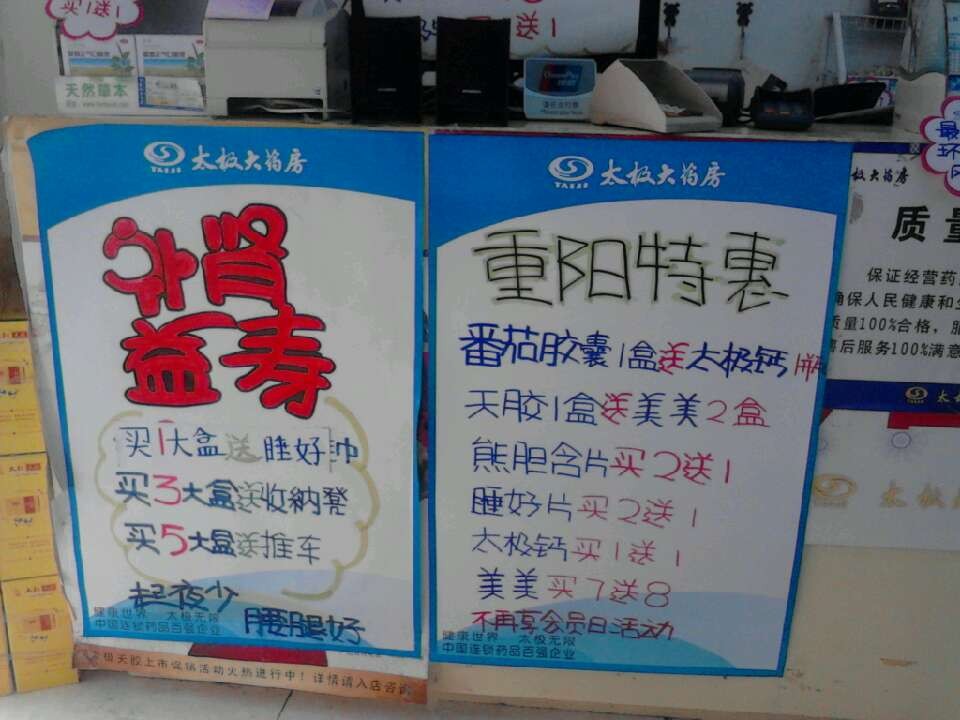 买1送1
送1
天然草本
太极大药房
TAIJI
补肾
益寿
买1大盒送睡好帅
买3大盒送收納凳
买5大盒送推车
起夜少
腰腿好
健康世界 太极无限
中国连锁药品百强企业
极天胶上市促销活动火热进行中！详情请入店咨询
太极大药房
TAIJI
重阳特惠
番茄胶囊1盒送太极钙1瓶
天胶1盒送美美2盒
熊胆含片买2送1
睡好片买2送1
太极钙买1送1
美美买7送8
不再享会员日活动
健康世界 太极无限
中国连锁药品百强企业
极大药房
质量
保证经营药
确保人民健康和
质量100%合格，服
售后服务100%满意
太极大药房